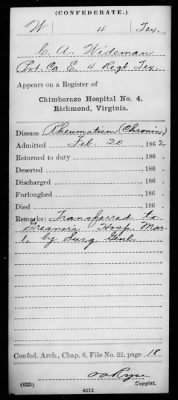 (CONFEDERATE.)
W 4 Tex.
C. A. Wideman
Pvt. Co. E, 4 Regt Tex.
Appears on a Register
of
Chimborazo Hospital No. 4,
Richmond, Virginia.
Disease Rheumatism (Chronic)
Admitted Feb. 20, 1862.
Returned to duty , 186
Deserted , 186
Discharged , 186
Furloughed , 186
Died , 186
Remarks: Transferred to
Greaner's Hosp. Mar
by Surg Genl.
Confed. Arch., Chap. 6, File No. 22, page 18
(635) 4212 Copyist.